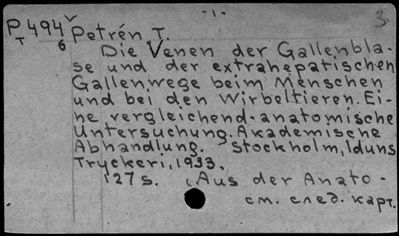 -1- 3
P 494 v Petrén T.
T 6
Die Venen der Gallenbla-
se und der extrahepatischen
Gallenwege beim Menschen
und bei den Wirbeltieren. Ei-
ne vergleichend-anatomische
Untersuchung. Akademische
Abhandlung. Stockholm, Iduns
Tryckeri, 1933.
127 s. (Aus der Anato-
см. след. карт.